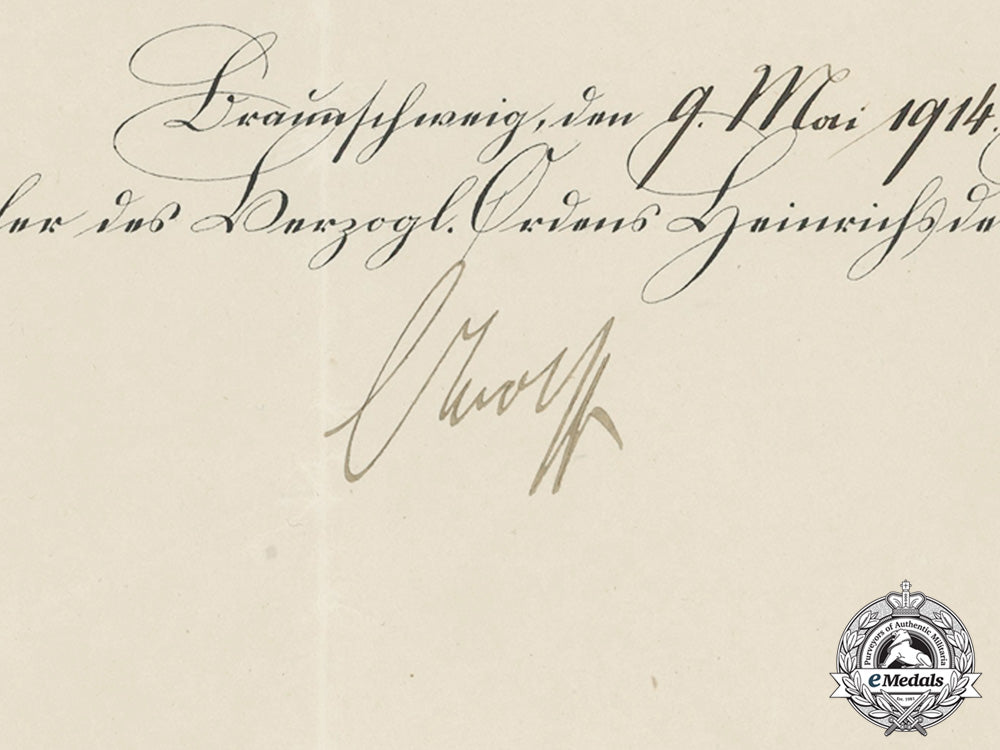 Braunschweig, den 9. Mai 1914.
ler des Herzogl. Ordens Heinrichs de
Wolff
Purveyors of Authentic Militaria
eMedals
Est. 1997